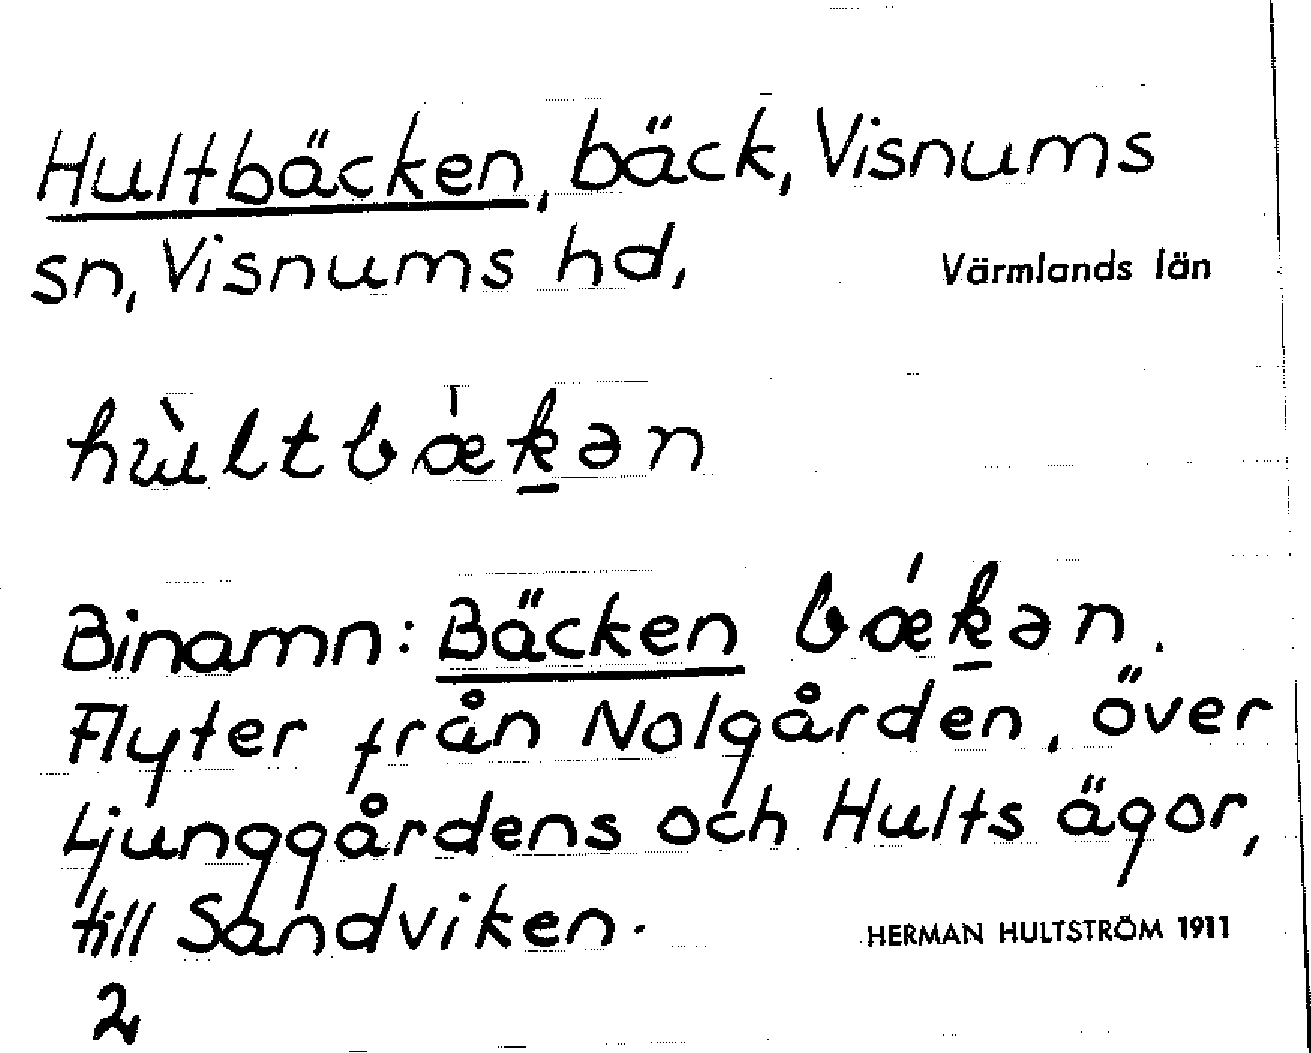 Hultbäcken, bäck, Visnums
sn, Visnums hd, Värmlands län
hùltbǽk̲ən
Binamn: Bäcken bǽk̲ən.
Flyter från Nolgården, över
Ljunggårdens och Hults ägor,
till Sandviken.
HERMAN HULTSTRÖM 1911
2